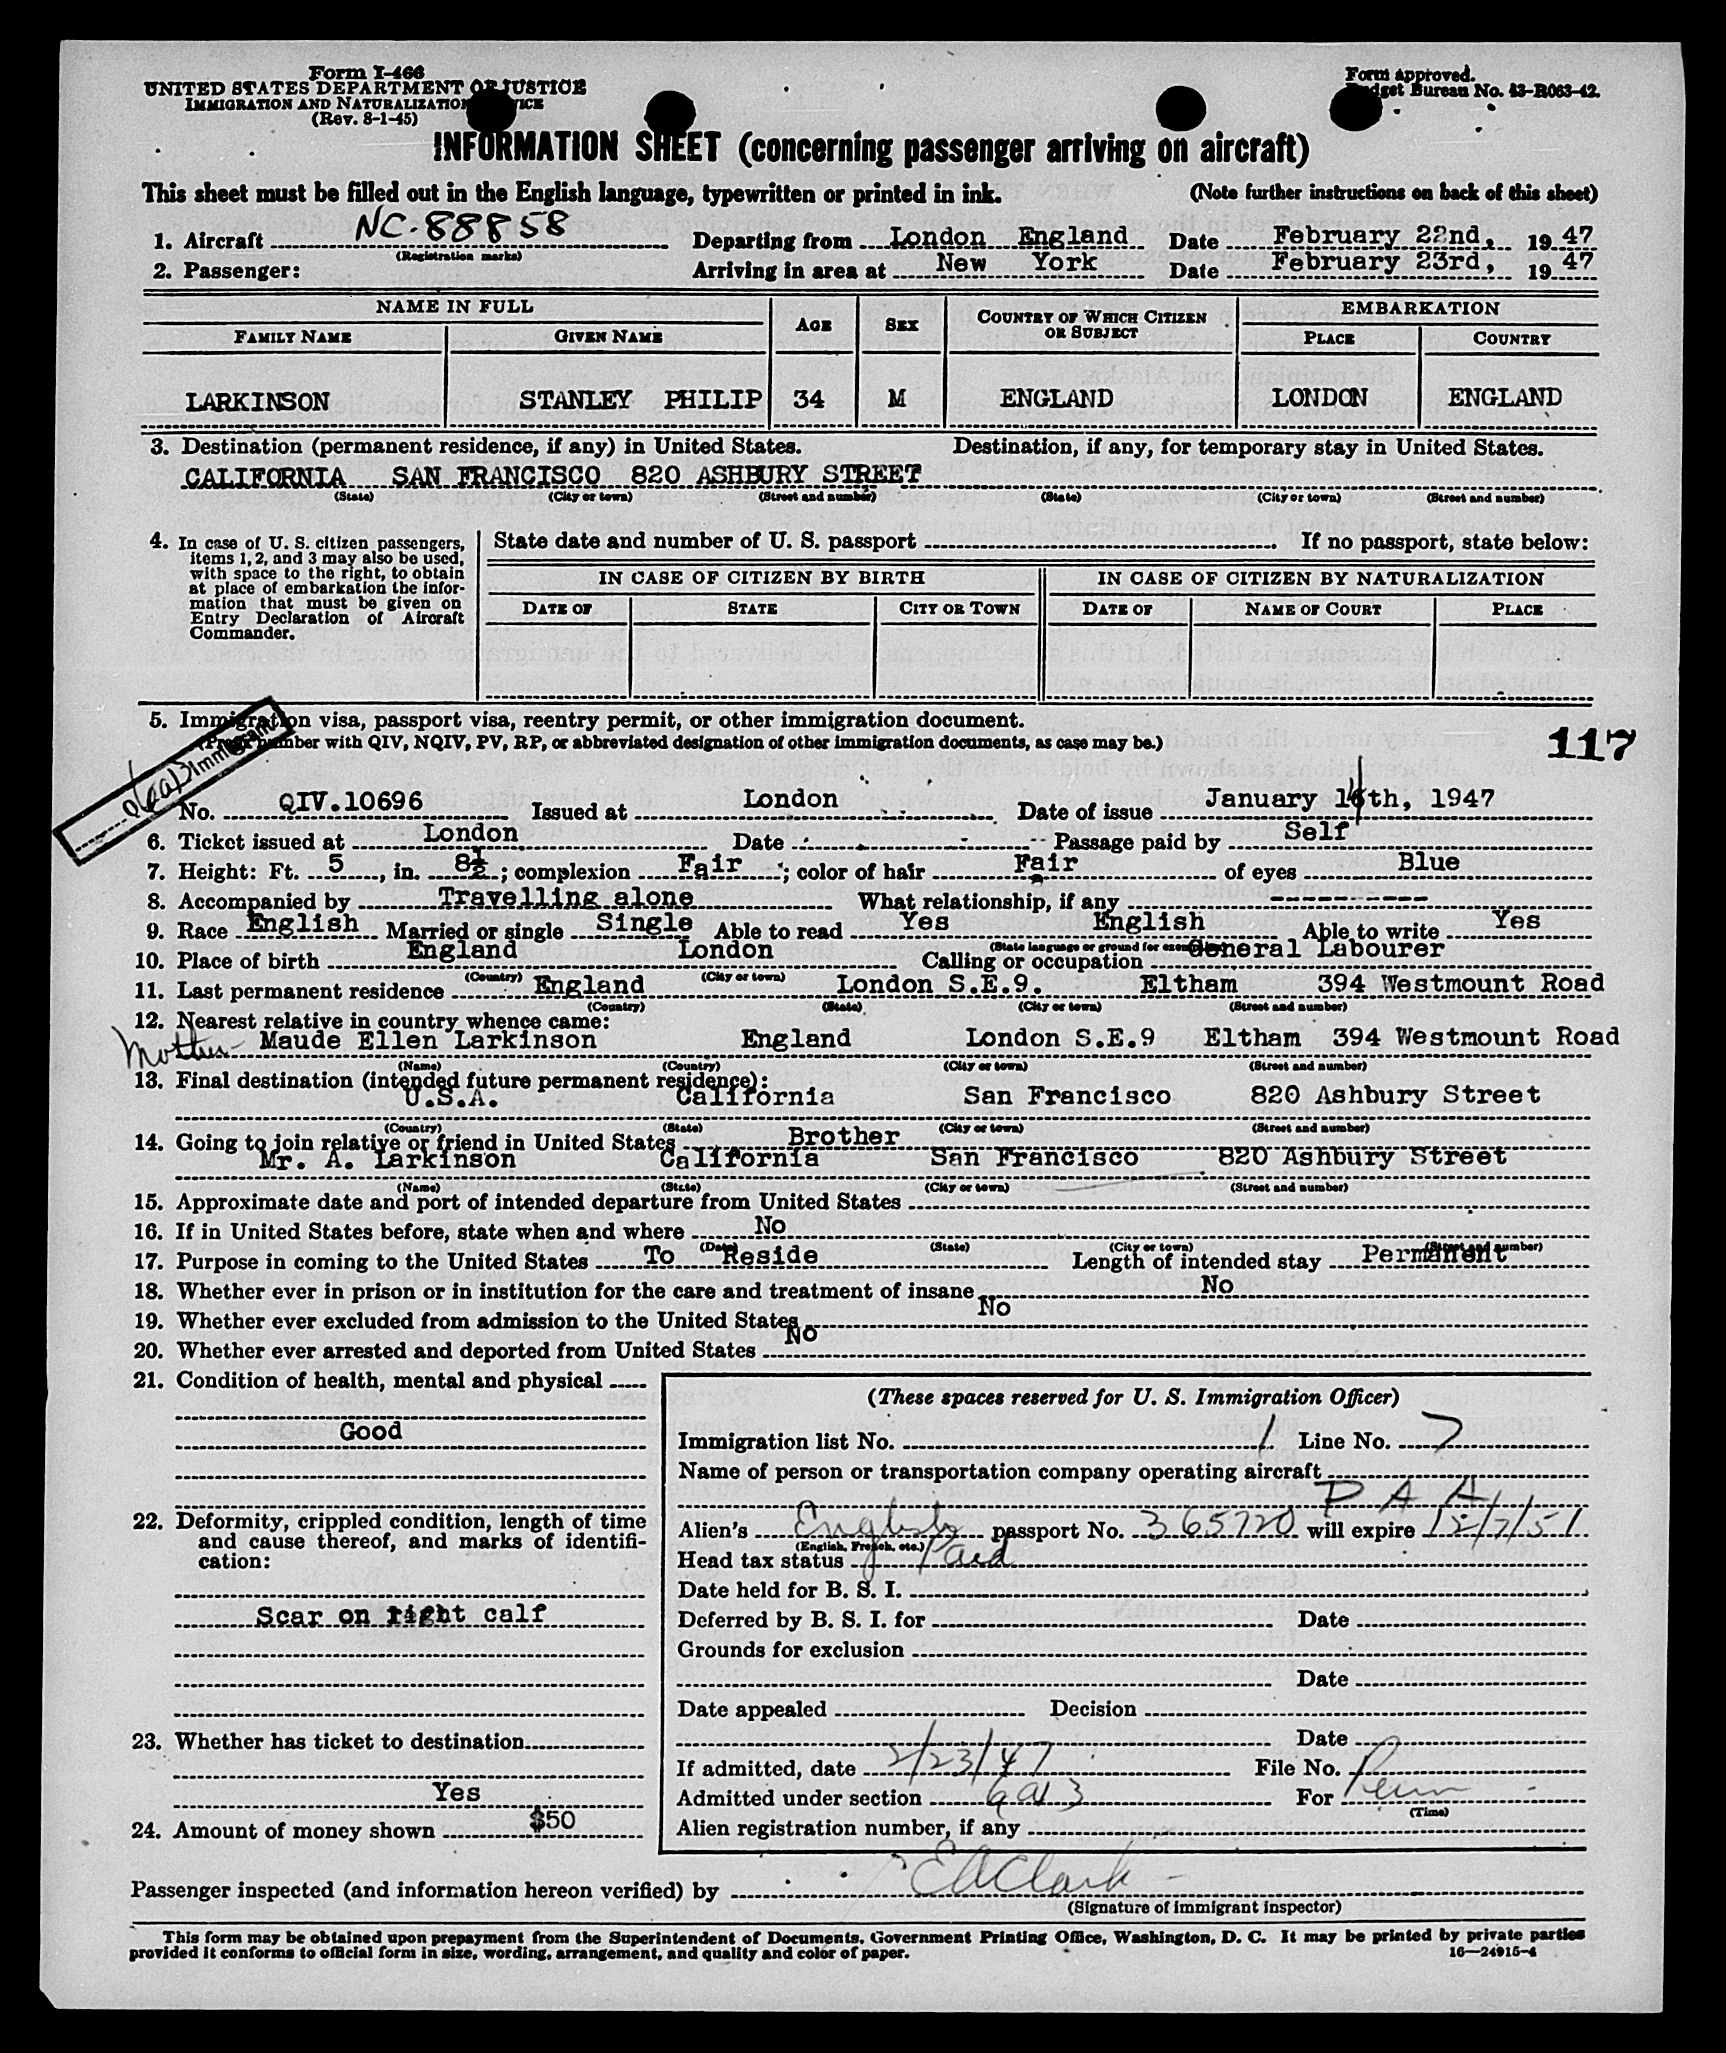 Form I-466
UNITED STATES DEPARTMENT OF JUSTICE
IMMIGRATION AND NATURALIZATION SERVICE
(Rev. 8-1-45)
Form approved.
Budget Bureau No. 43-R063-42.
INFORMATION SHEET (concerning passenger arriving on aircraft)
This sheet must be filled out in the English language, typewritten or printed in ink. (Note further instructions on back of this sheet)
1. Aircraft NC-88858 Departing from London England Date February 22nd, 1947
(Registration marks)
2. Passenger: Arriving in area at New York Date February 23rd, 1947
NAME IN FULL AGE SEX COUNTRY OF WHICH CITIZEN OR SUBJECT EMBARKATION
FAMILY NAME GIVEN NAME PLACE COUNTRY
LARKINSON STANLEY PHILIP 34 M ENGLAND LONDON ENGLAND
3. Destination (permanent residence, if any) in United States. Destination, if any, for temporary stay in United States.
CALIFORNIA SAN FRANCISCO 820 ASHBURY STREET
(State) (City or town) (Street and number) (State) (City or town) (Street and number)
4. In case of U. S. citizen passengers, items 1, 2, and 3 may also be used, with space to the right, to obtain at place of embarkation the information that must be given on Entry Declaration of Aircraft Commander.
State date and number of U. S. passport If no passport, state below:
IN CASE OF CITIZEN BY BIRTH IN CASE OF CITIZEN BY NATURALIZATION
DATE OF STATE CITY OR TOWN DATE OF NAME OF COURT PLACE
5. Immigration visa, passport visa, reentry permit, or other immigration document.
(Prefix number with QIV, NQIV, PV, RP, or abbreviated designation of other immigration documents, as case may be.)
117
6(a)3 Immigrant
No. QIV.10696 Issued at London Date of issue January 14th, 1947
6. Ticket issued at London Date Passage paid by Self
7. Height: Ft. 5, in. 8½; complexion Fair; color of hair Fair of eyes Blue
8. Accompanied by Travelling alone What relationship, if any ----------
9. Race English Married or single Single Able to read Yes English Able to write Yes
(State language or ground for exemption)
10. Place of birth England London Calling or occupation General Labourer
(Country) (City or town)
11. Last permanent residence England London S.E.9. Eltham 394 Westmount Road
(Country) (State) (City or town) (Street and number)
12. Nearest relative in country whence came:
Mother- Maude Ellen Larkinson England London S.E.9 Eltham 394 Westmount Road
(Name) (Country) (City or town) (Street and number)
13. Final destination (intended future permanent residence):
U.S.A. California San Francisco 820 Ashbury Street
(Country) (State) (City or town) (Street and number)
14. Going to join relative or friend in United States Brother
Mr. A. Larkinson California San Francisco 820 Ashbury Street
(Name) (State) (City or town) (Street and number)
15. Approximate date and port of intended departure from United States
16. If in United States before, state when and where No
(Date) (State) (City or town) (Street and number)
17. Purpose in coming to the United States To Reside Length of intended stay Permanent
18. Whether ever in prison or in institution for the care and treatment of insane No
19. Whether ever excluded from admission to the United States No
20. Whether ever arrested and deported from United States No
21. Condition of health, mental and physical
Good
22. Deformity, crippled condition, length of time and cause thereof, and marks of identification:
Scar on right calf
23. Whether has ticket to destination
Yes
24. Amount of money shown $50
(These spaces reserved for U. S. Immigration Officer)
Immigration list No. 1 Line No. 7
Name of person or transportation company operating aircraft
P A A
Alien's English passport No. 365720 will expire 12/7/51
(English, French, etc.)
Head tax status Paid
Date held for B. S. I.
Deferred by B. S. I. for Date
Grounds for exclusion
Date
Date appealed Decision
Date
If admitted, date 2/23/47 File No.
Admitted under section 6a3 For Perm
(Time)
Alien registration number, if any
Passenger inspected (and information hereon verified) by EAClark
(Signature of immigrant inspector)
This form may be obtained upon prepayment from the Superintendent of Documents, Government Printing Office, Washington, D. C. It may be printed by private parties
provided it conforms to official form in size, wording, arrangement, and quality and color of paper. 16—24915-4